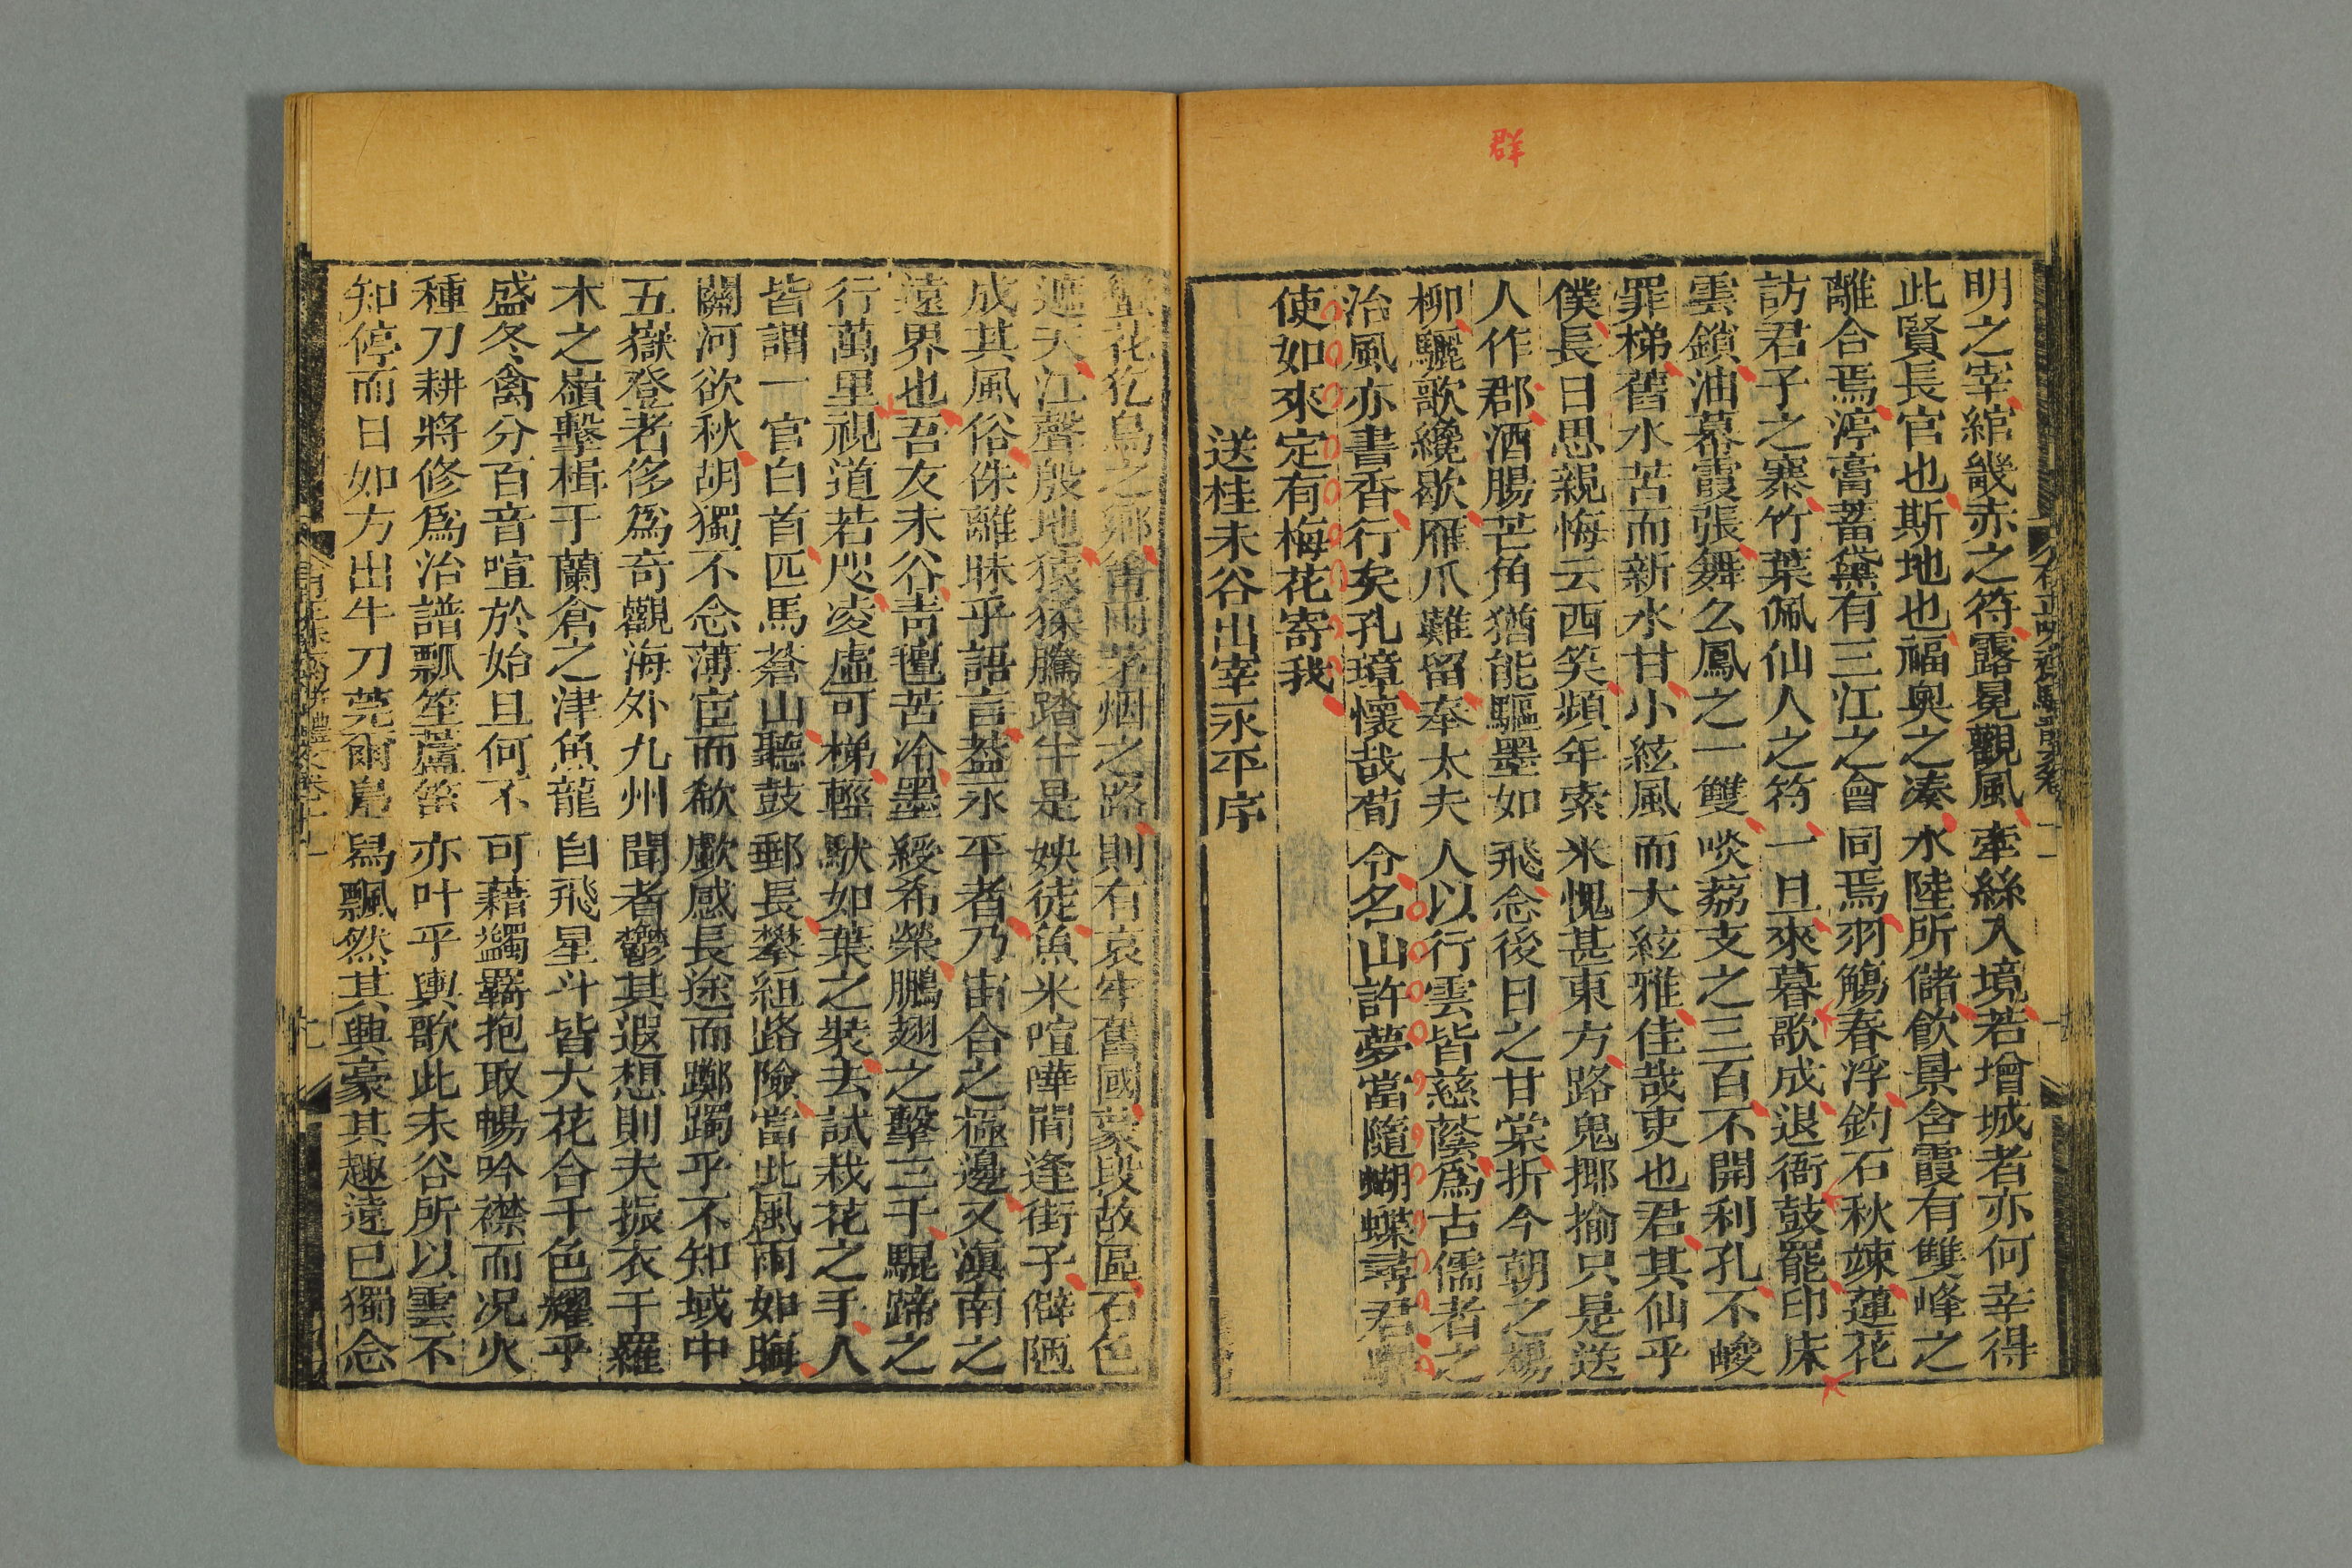 群
明之宰綰畿赤之符露冕觀風牽絲入境若增城者亦何幸得
此賢長官也斯地也福奥之湊水陸所儲飲景含霞有雙峰之
離合焉渟膏蓄黛有三江之會同焉羽觴春浮釣石秋竦蓮花
訪君子之寨竹葉佩仙人之符一旦來暮歌成退衙鼓罷印床
雲鎖油幕霞張舞么鳳之一雙啖荔支之三百不開利孔不峻
罪梯舊水苦而新水甘小絃風而大絃雅佳哉吏也君其仙乎
僕長日思親悔云西笑頻年索米愧甚東方路鬼揶揄只是送
人作郡酒腸芒角猶能驅墨如飛念後日之甘棠折今朝之楊
柳驪歌纔歇雁爪難留奉太夫人以行雲皆慈蔭爲古儒者之
治風亦書香行矣孔璋懷哉荀令名山許夢當隨蝴蝶尋君
使如來定有梅花寄我
送桂未谷出宰永平序
花花鳥之鄉雷雨茅烟之路則有哀牢舊國蒙段故區石色
遮天江聲殷地猿猱騰踏半是姎徒魚米喧嘩間逢街子僻陋
成其風俗侏離昧乎語言葢永平者乃宙合之極邊又滇南之
遠界也吾友未谷靑氊苦冷墨綬希榮鵬翅之擊三千騉蹄之
行萬里視道若咫凌虛可梯輕馱如葉之裝去試栽花之手人
皆謂一官白首匹馬蒼山聽鼓郵長攀絙路險當此風雨如晦
關河欲秋胡獨不念薄宦而欷歔感長途而躑躅乎不知域中
五嶽登者侈爲奇觀海外九州聞者鬱其遐想則夫振衣于羅
木之嶺擊楫于蘭倉之津魚龍自飛星斗皆大花合千色耀乎
盛冬禽分百音喧於始旦何不可藉蠲羈抱取暢吟襟而况火
種刀耕將修爲治譜瓢笙蘆笛亦叶乎輿歌此未谷所以雲不
知停而日如方出牛刀莞爾鳧舄飄然其興豪其趣遠已獨念